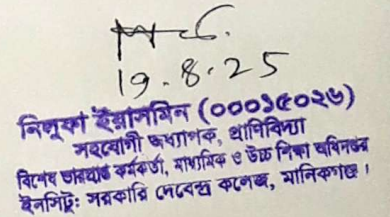 19.8.25
নিলুফা ইয়াসমিন (০০০১৫০২৬)
সহযোগী অধ্যাপক, প্রাণিবিদ্যা
বিশেষ ভারপ্রাপ্ত কর্মকর্তা, মাধ্যমিক ও উচ্চ শিক্ষা অধিদপ্তর
ইনসিটু: সরকারি দেবেন্দ্র কলেজ, মানিকগঞ্জ।